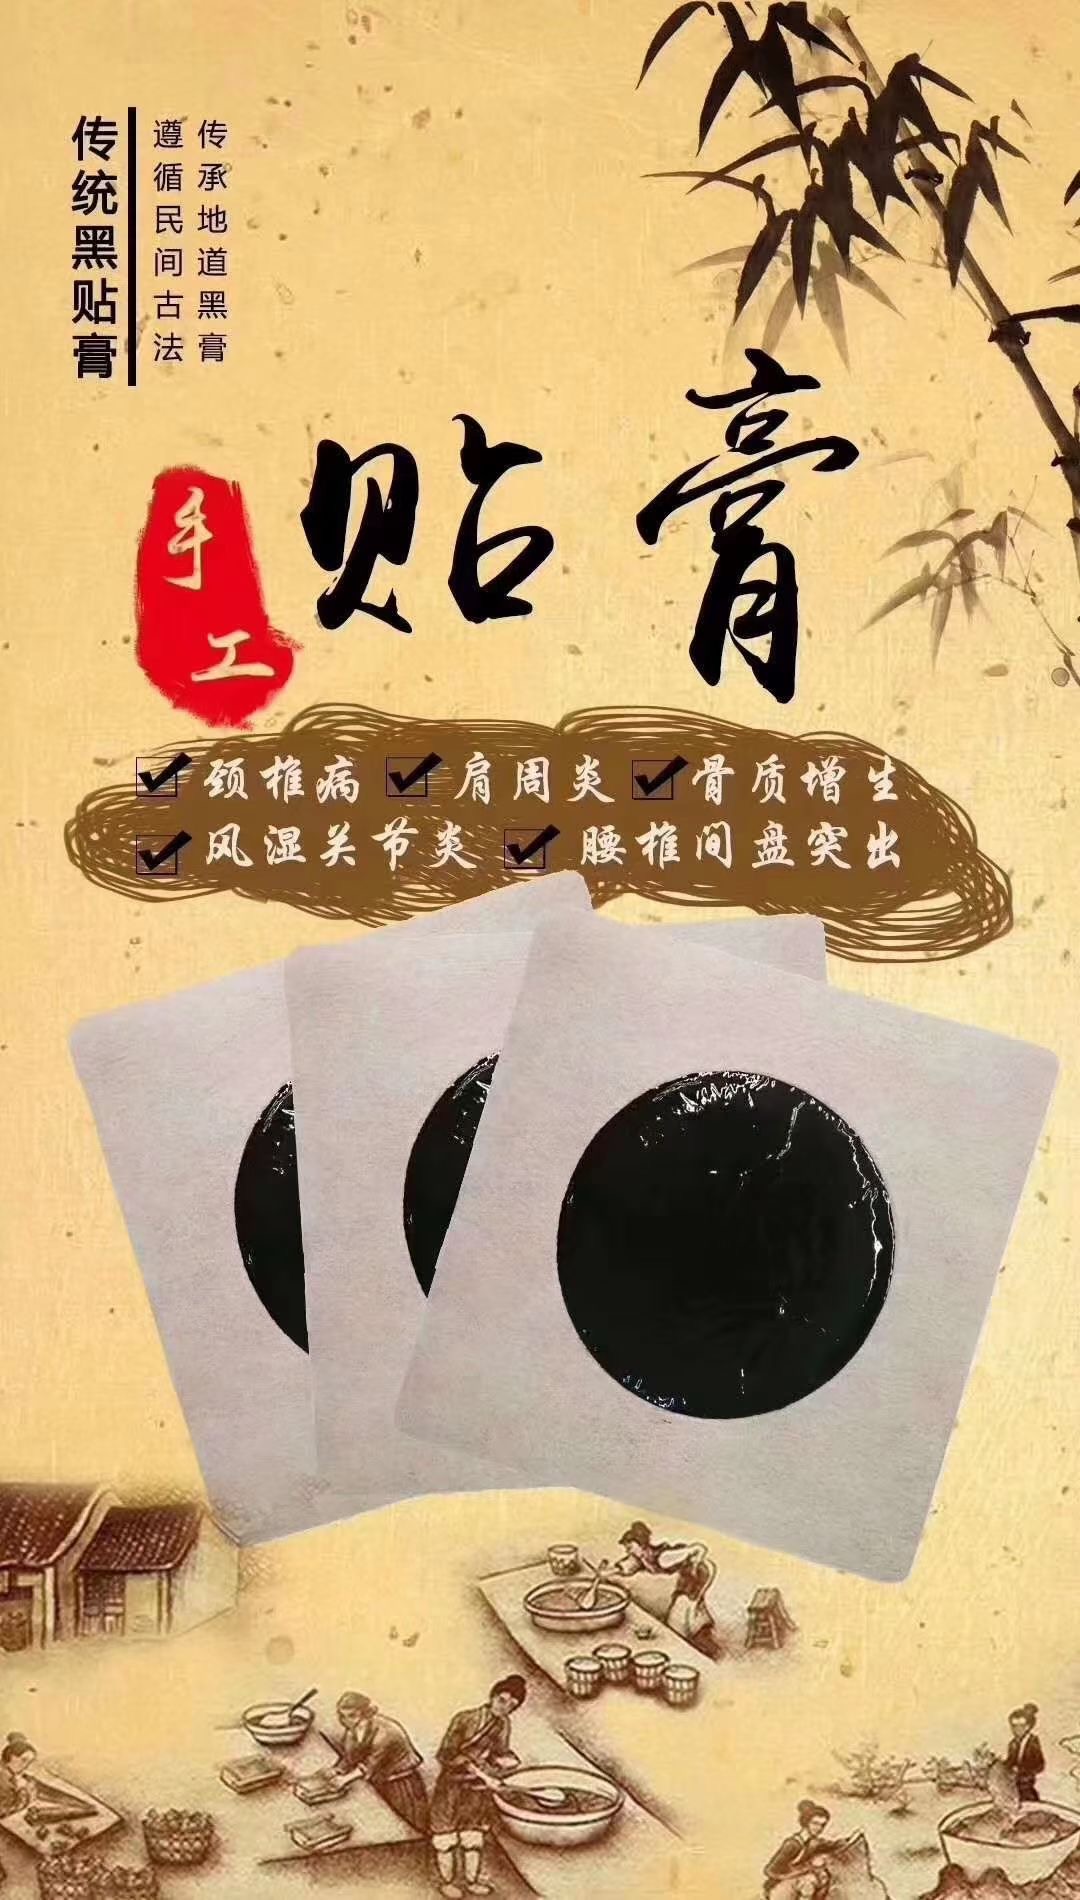 传统黑贴膏
传承地道黑膏
遵循民间古法
手工
贴膏
颈椎病 肩周炎 骨质增生
风湿关节炎 腰椎间盘突出